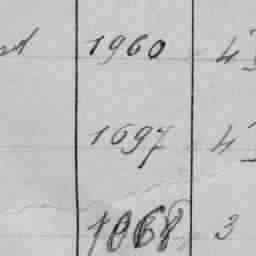 1960 4
1697 4
1668 3